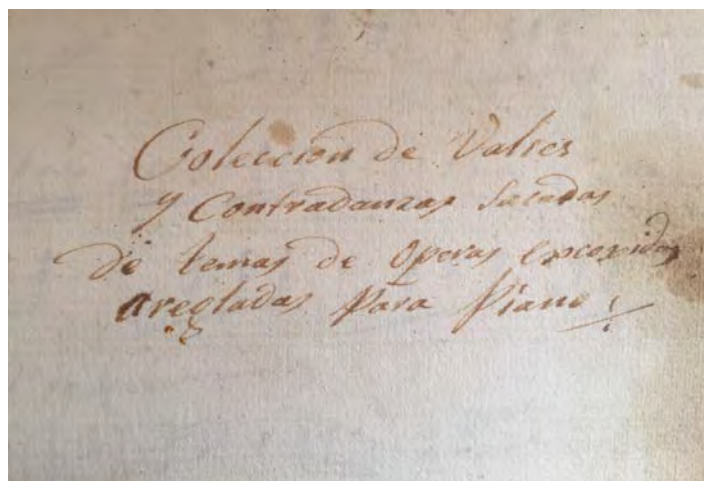 Coleccion de Valses
y Contradanzas sacadas
de temas de Operas escogidas
aregladas para Piano